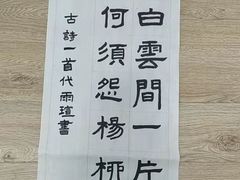 白雲間一片
何須怨楊柳
古詩一首代雨瑄書